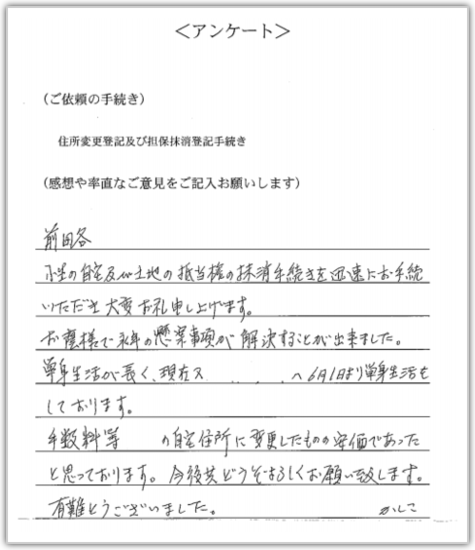 ＜アンケート＞
（ご依頼の手続き）
住所変更登記及び担保抹消登記手続き
（感想や率直なご意見をご記入お願いします）
前田各
小生の自宅及び土地の抵当権の抹消手続きを迅速にお手続
いただき大変お礼申し上げます。
お蔭様で永年の懸案事項が解決することが出来ました。
単身生活が長く、現在又 へ6月1日より単身生活を
しております。
手数料等 の自宅住所に変更したものの安価であった
と思っております。今後共どうぞよろしくお願い致します。
有難とうございました。
かしこ